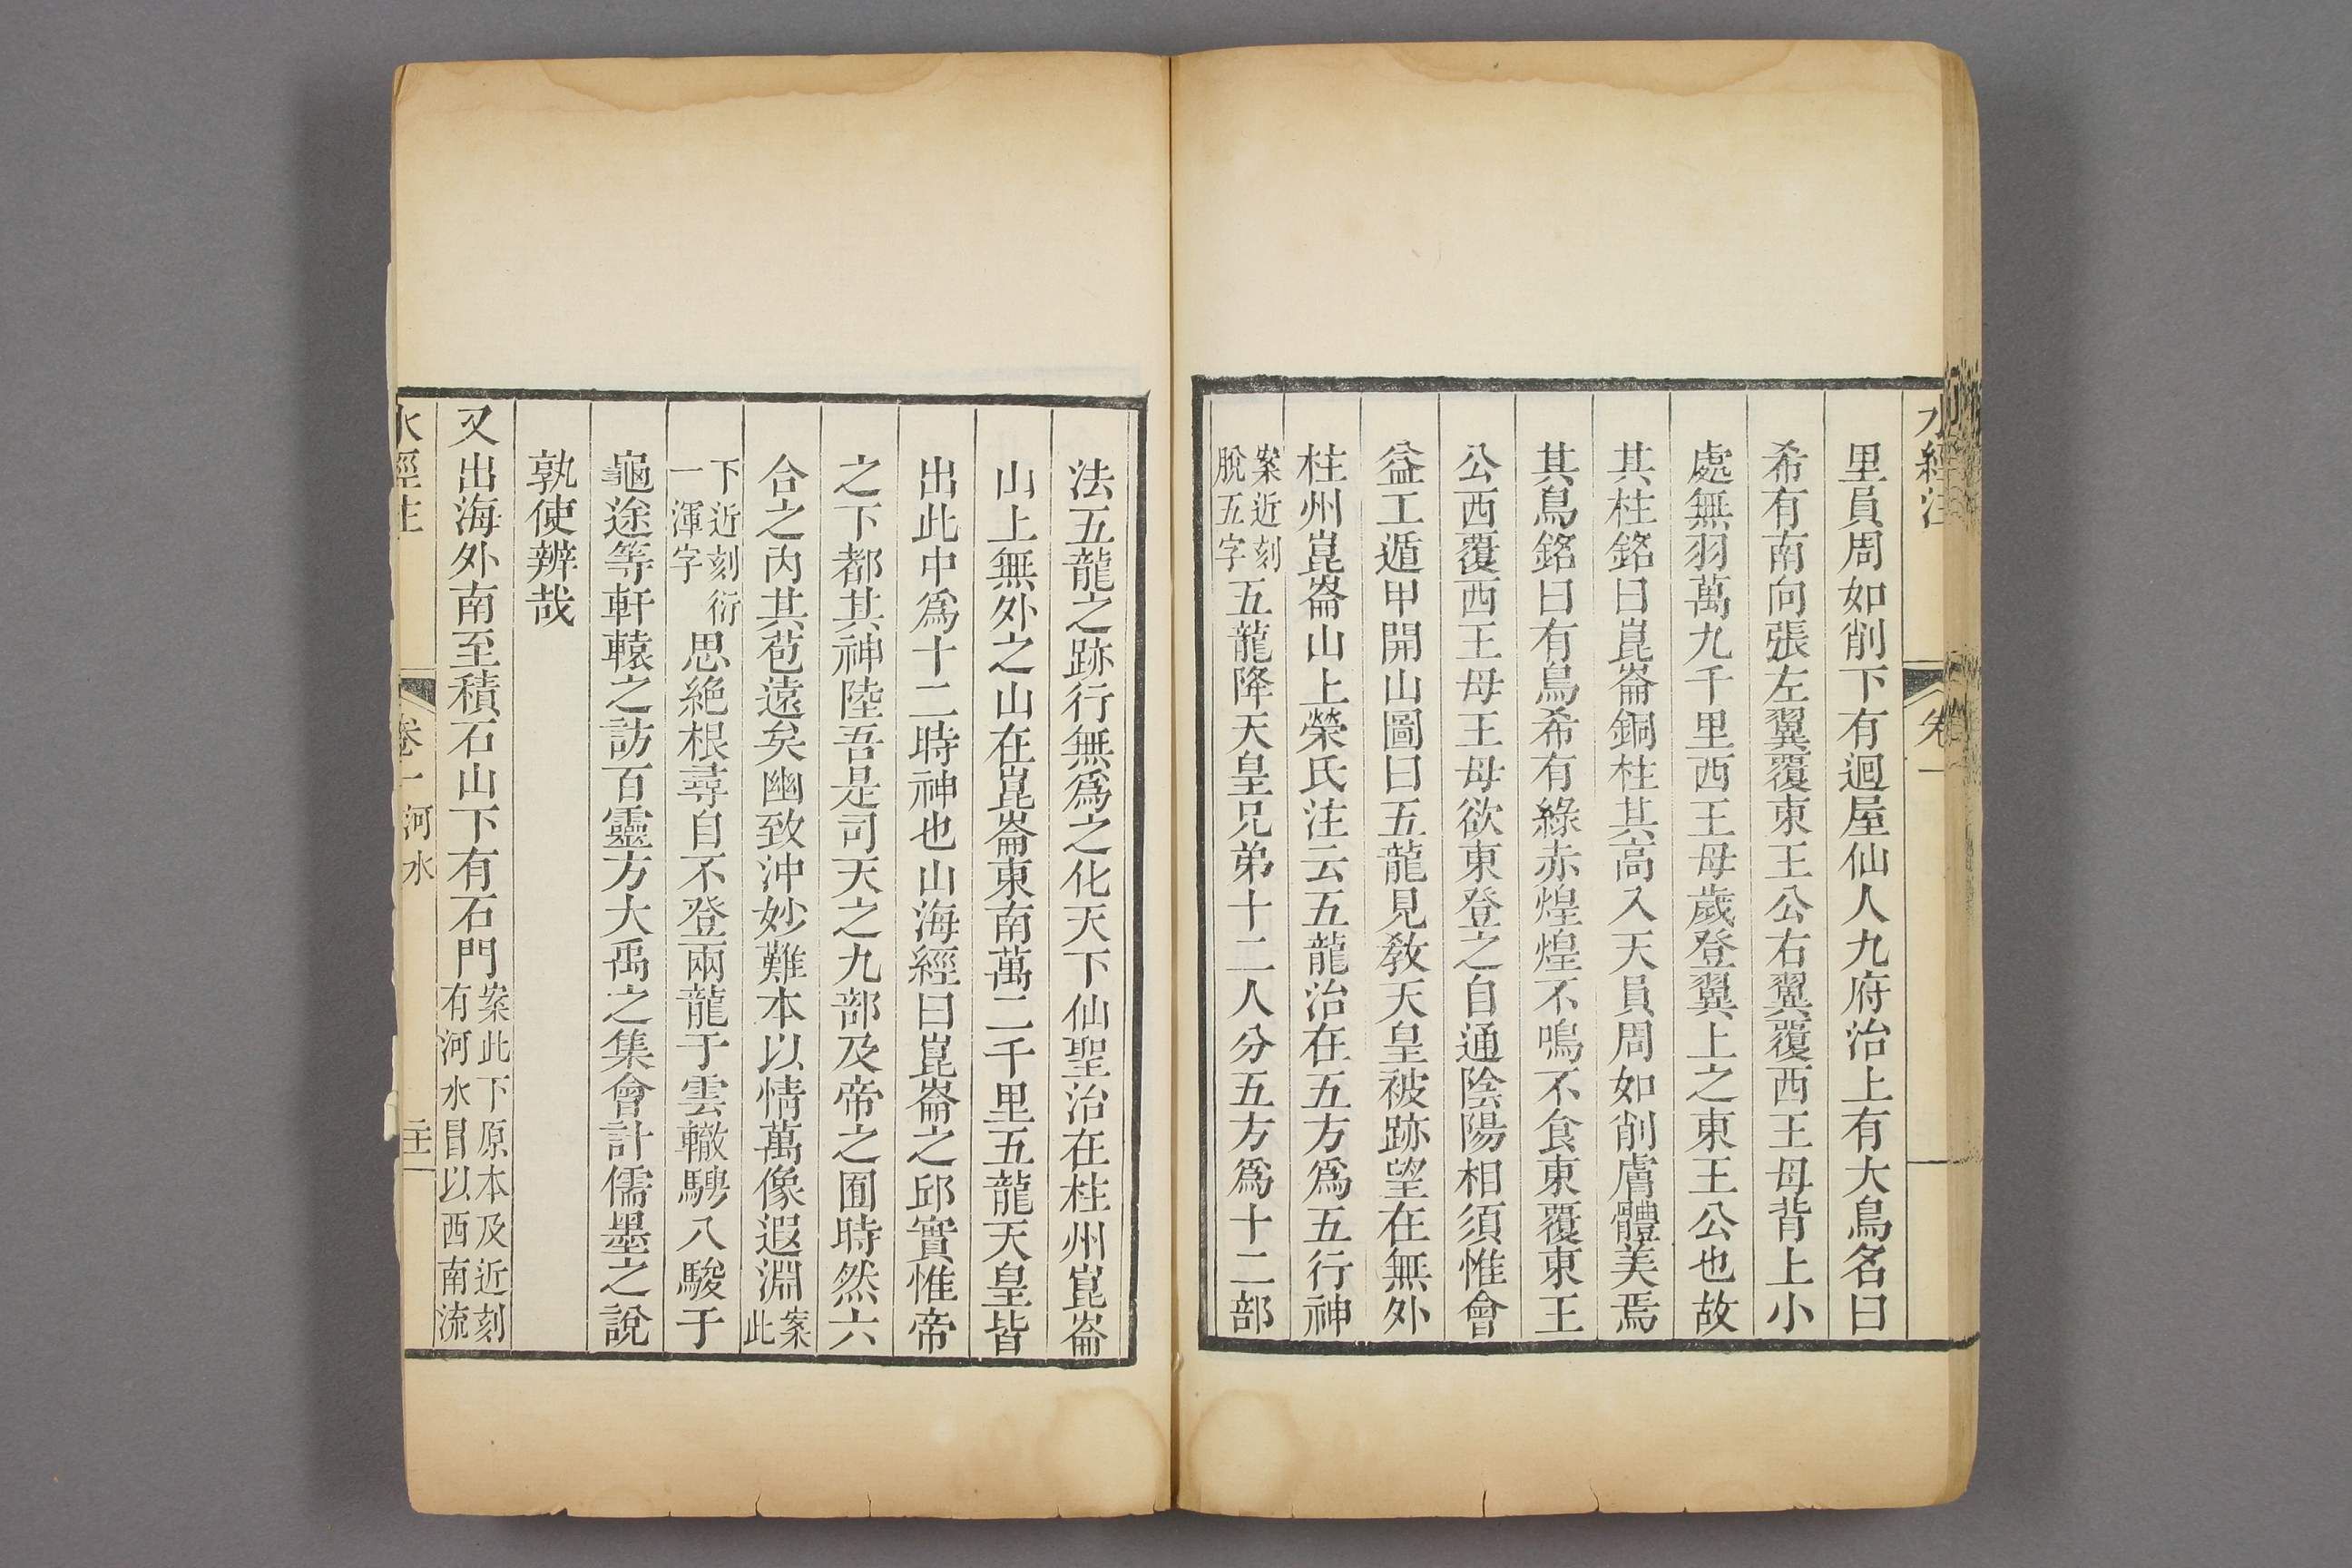 水經注 卷一
里員周如削下有迴屋仙人九府治上有大鳥名曰
希有南向張左翼覆東王公右翼覆西王母背上小
處無羽萬九千里西王母歲登翼上之東王公也故
其柱銘曰崑崙銅柱其高入天員周如削膚體美焉
其鳥銘曰有鳥希有綠赤煌煌不鳴不食東覆東王
公西覆西王母王母欲東登之自通陰陽相須惟會
益工遁甲開山圖曰五龍見敎天皇被跡望在無外
柱州崑崙山上榮氏注云五龍治在五方爲五行神
案近刻脫五字五龍降天皇兄弟十二人分五方爲十二部
法五龍之跡行無爲之化天下仙聖治在柱州崑崙
山上無外之山在崑崙東南萬二千里五龍天皇皆
出此中爲十二時神也山海經曰崑崙之邱實惟帝
之下都其神陸吾是司天之九部及帝之囿時然六
合之內其苞遠矣幽致沖妙難本以情萬像遐淵案此
下近刻衍一渾字思絶根尋自不登兩龍于雲轍騁八駿于
龜途等軒轅之訪百靈方大禹之集會計儒墨之說
孰使辨哉
又出海外南至積石山下有石門案此下原本及近刻有河水冒以西南流
水經注 卷一 河水 二十一